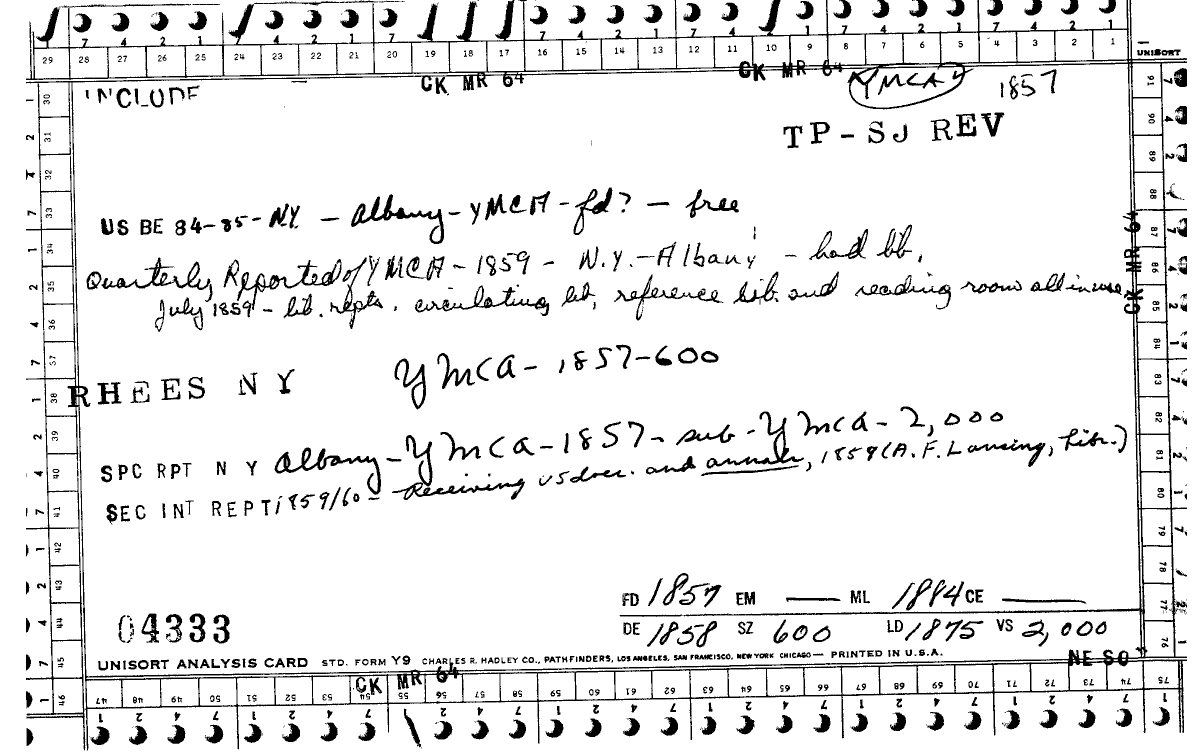 29 28 27 26 25 24 23 22 21 20 19 18 17 16 15 14 13 12 11 10 9 8 7 6 5 4 3 2 1
UNISORT
CK MR 64 CK MR 64
INCLUDE YMCA 1857
TP-SJ REV
US BE 84-85-NY - Albany-YMCA-fd? - free
Quarterly Reported of YMCA-1859 - N.Y.-Albany - had lib.
July 1859 - lib. repts. circulating lib, reference lib. and reading room all in use
CK MR 64
RHEES NY YMCA-1857-600
SPC RPT NY Albany-YMCA-1857-sub-YMCA-2,000
SEC INT REPT 1859/60 - Receiving US doc. and annals, 1859 (A. F. Lansing, Libr.)
FD 1857 EM — ML 1884 CE —
04333 DE 1858 SZ 600 LD 1875 VS 2,000
UNISORT ANALYSIS CARD STD. FORM Y9 CHARLES R. HADLEY CO., PATHFINDERS, LOS ANGELES, SAN FRANCISCO, NEW YORK CHICAGO— PRINTED IN U.S.A.
NE SO
CK MR 64
47 48 49 50 51 52 53 54 55 56 57 58 59 60 61 62 63 64 65 66 67 68 69 70 71 72 73 74 75